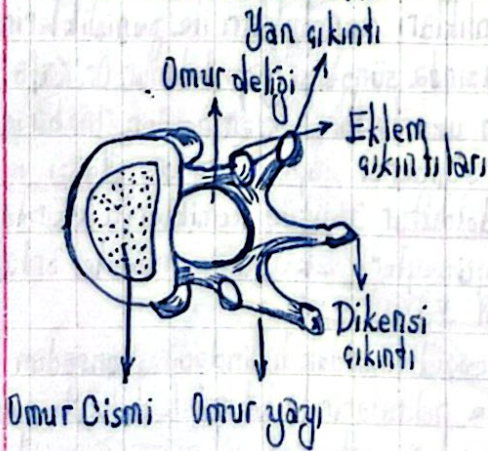 Yan çıkıntı
Omur deliği
Eklem
çıkıntıları
Dikensi
çıkıntı
Omur Cismi
Omur yayı